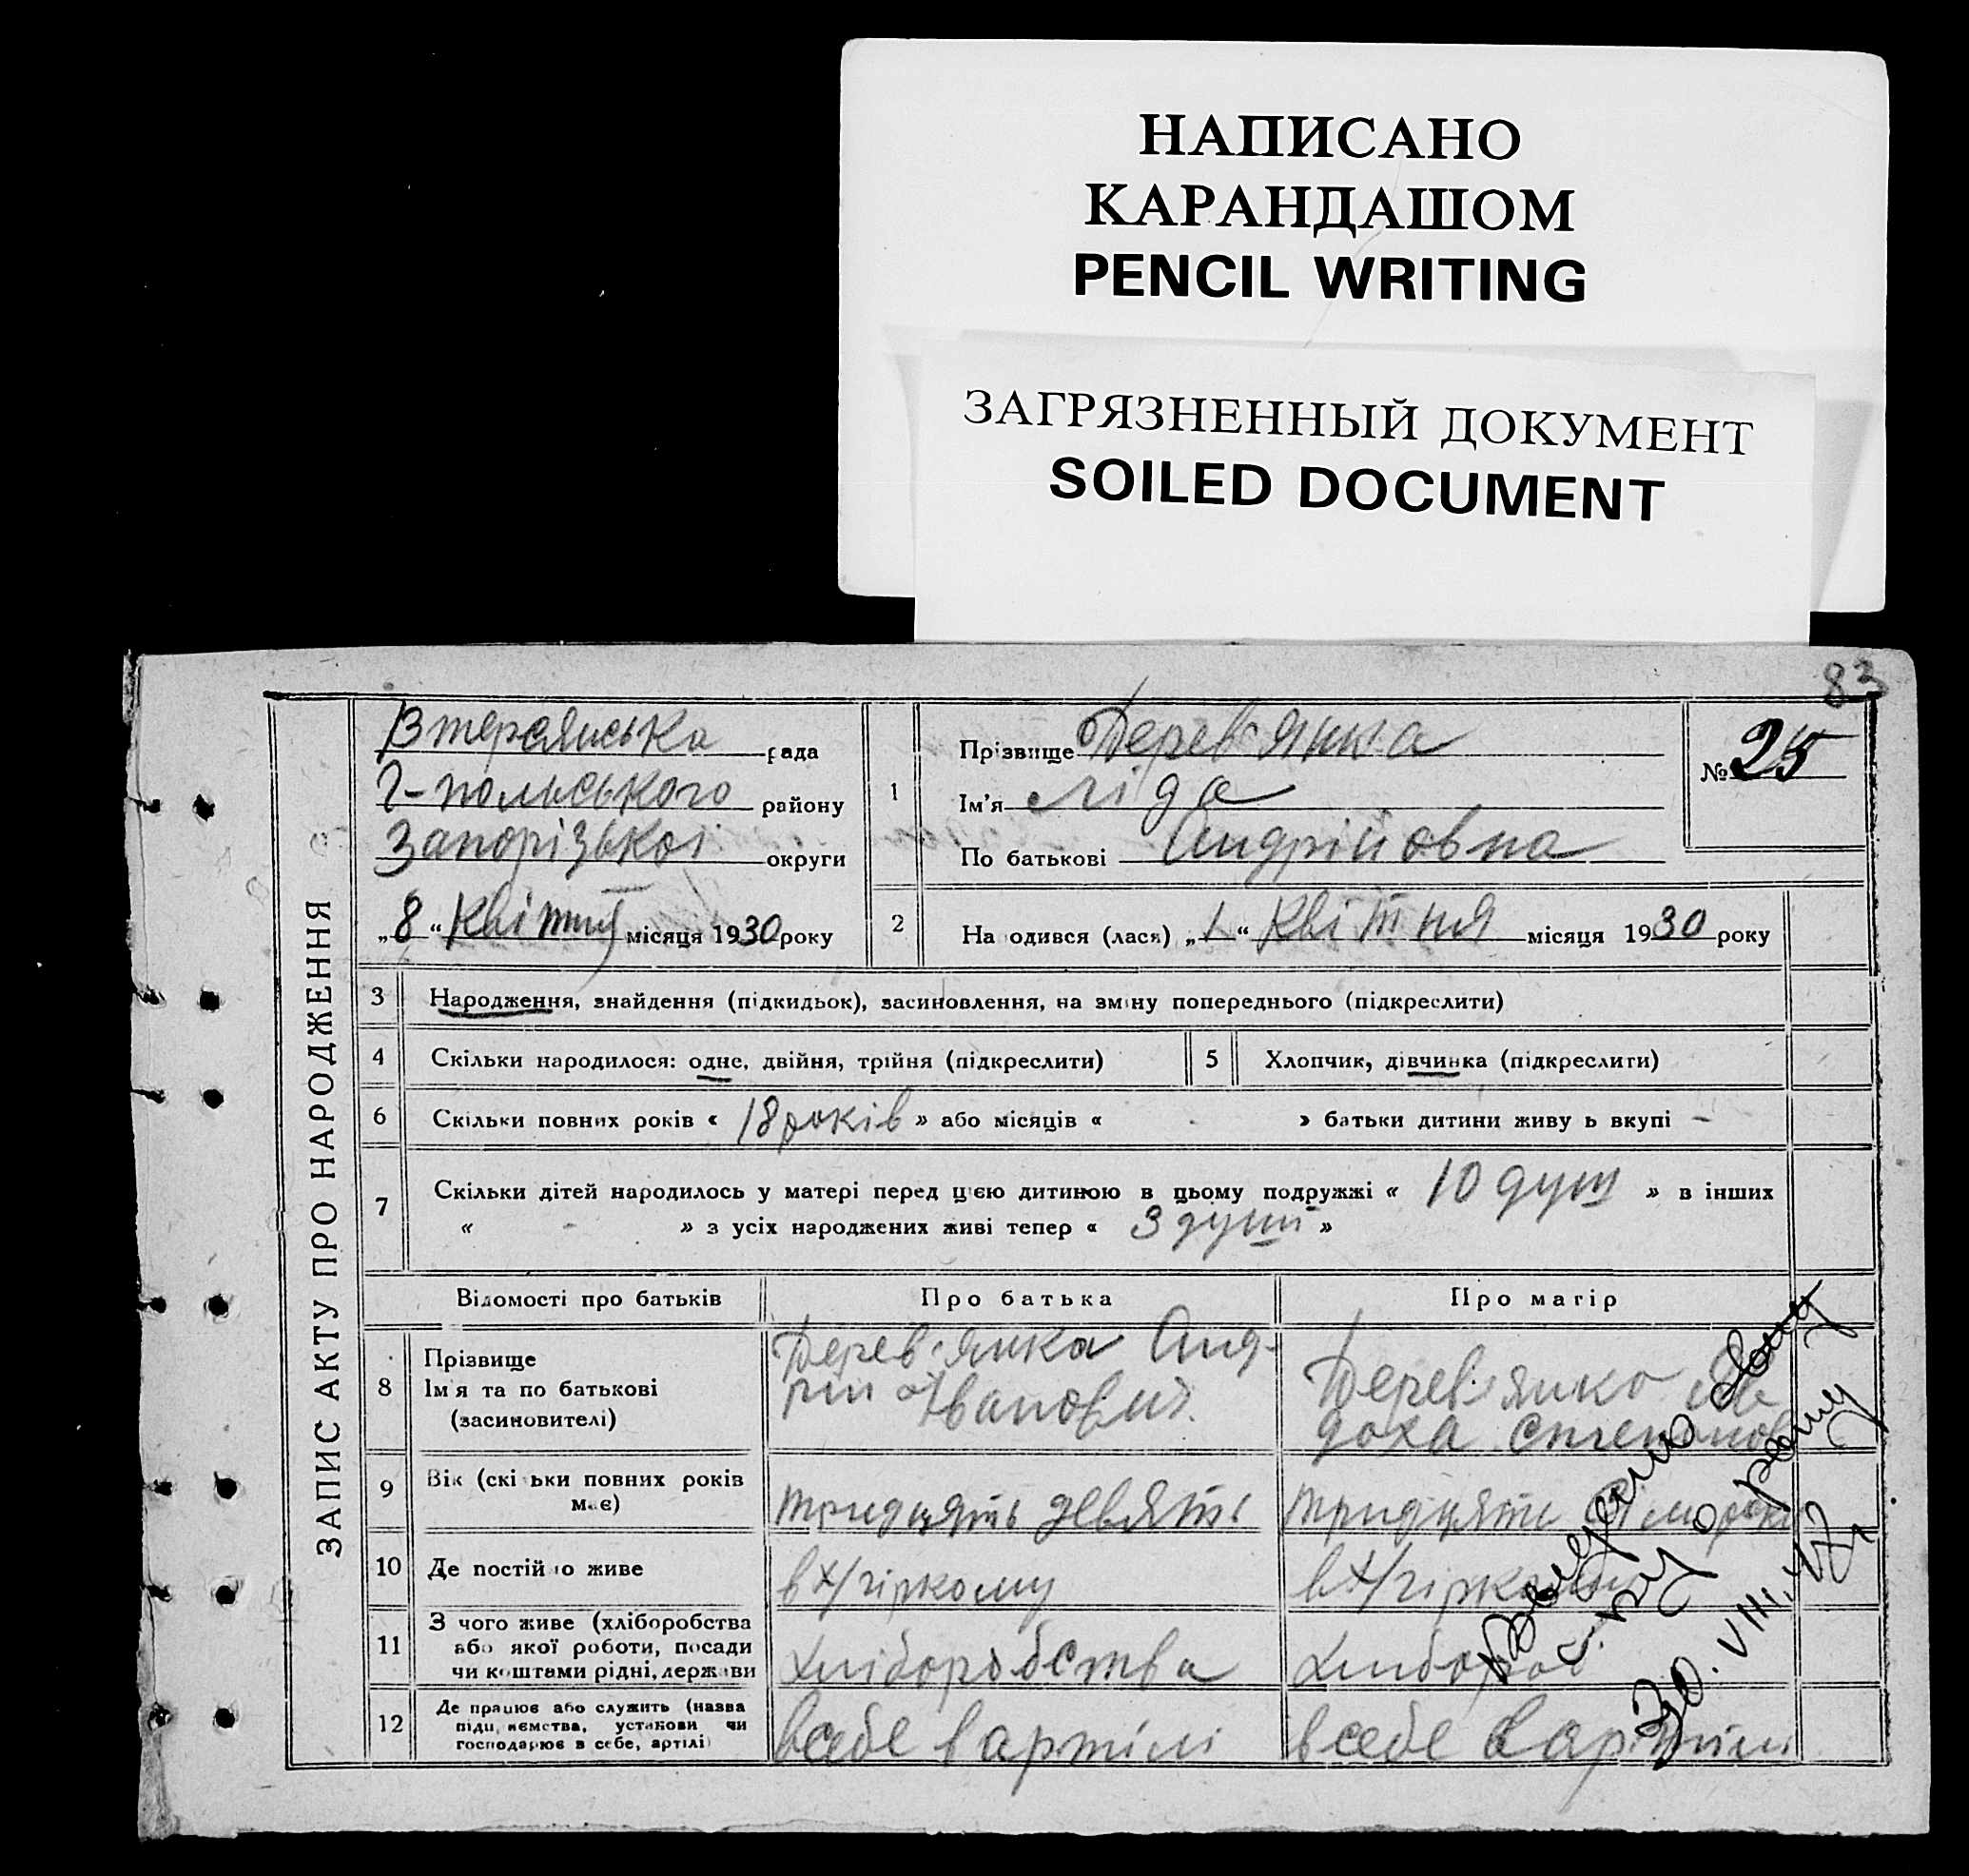 НАПИСАНО
КАРАНДАШОМ
PENCIL WRITING
ЗАГРЯЗНЕННЫЙ ДОКУМЕНТ
SOILED DOCUMENT
83
ЗАПИС АКТУ ПРО НАРОДЖЕННЯ
рада
Г-польського району
Запорізької округи
„8“ Квітня місяця 1930 року
1
Прізвище Дерев'янка
Ім'я Ліда
По батькові Андрійовна
№ 25
2 На одився (лася) „1“ Квітня місяця 1930 року
3 Народження, знайдення (підкидьок), засиновлення, на зміну попереднього (підкреслити)
4 Скільки народилося: одне, двійня, трійня (підкреслити) 5 Хлопчик, дівчинка (підкреслити)
6 Скільки повних років « 18 років » або місяців « - » батьки дитини живу ь вкупі -
7 Скільки дітей народилось у матері перед цією дитиною в цьому подружжі « 10 душ » в інших
« - » з усіх народжених живі тепер « 3 душі »
Відомості про батьків Про батька Про матір
8 Прізвище
Ім'я та по батькові
(засиновителі)
Дерев'янка Анд-
рій Іванович
Дерев'янко Яв
доха Степанов
9 Вік (скі ьки повних років
має)
тридцять девять
тридцять
10 Де постій о живе
в х/гіркому
в х/гіркому
11 З чого живе (хліборобства
або якої роботи, посади
чи коштами рідні, держави
Хліборобства
Хлибороб
12 Де працює або служить (назва
підприємства, установи чи
господарює в себе, артілі)
в себе в артілі
в себе в артілі
30.VIII.47